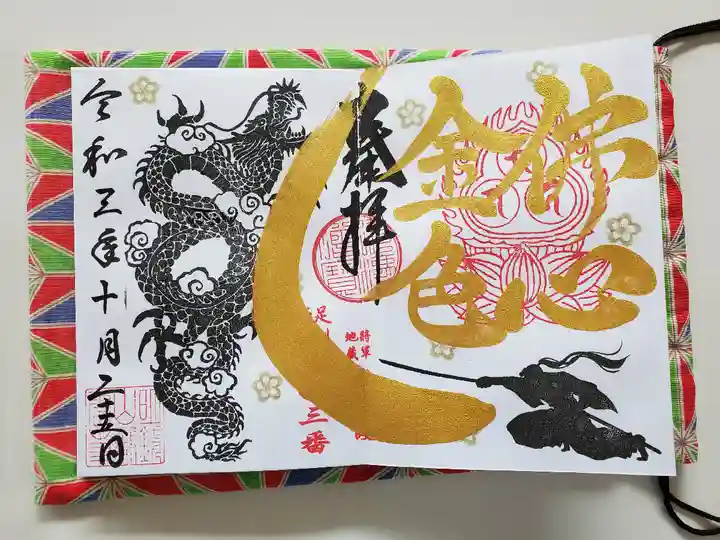 佛心
金色
奉拝
将軍
地蔵
足
三番
令和三年十月二十五日